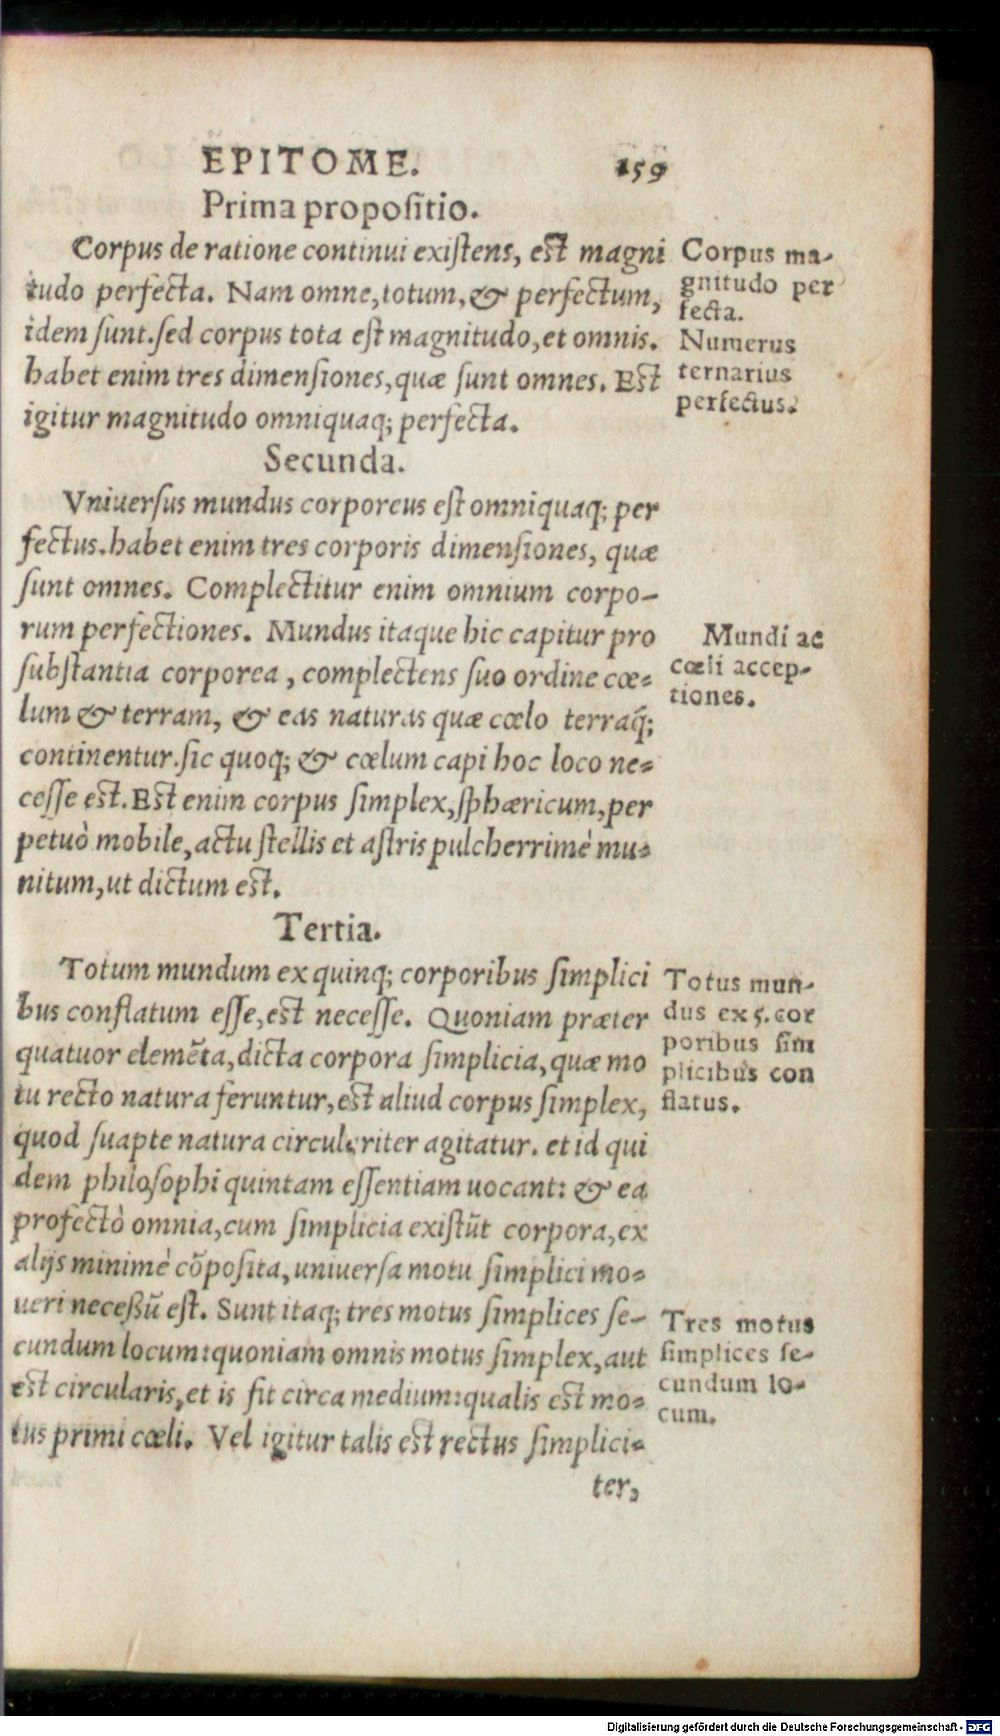 EPITOME. 159
Prima propositio.
Corpus de ratione continui existens, est magni
tudo perfecta. Nam omne, totum, & perfectum,
idem sunt. sed corpus tota est magnitudo, et omnis.
habet enim tres dimensiones, quæ sunt omnes. Est
igitur magnitudo omniquaq; perfecta.
Corpus ma-
gnitudo per
fecta.
Numerus
ternarius
perfectus.
Secunda.
Vniuersus mundus corporeus est omniquaq; per
fectus. habet enim tres corporis dimensiones, quæ
sunt omnes. Complectitur enim omnium corpo-
rum perfectiones. Mundus itaque hic capitur pro
substantia corporea, complectens suo ordine cœ-
lum & terram, & eas naturas quæ cœlo terraq́;
continentur. sic quoq; & cœlum capi hoc loco ne-
cesse est. Est enim corpus simplex, sphæricum, per
petuò mobile, actu stellis et astris pulcherrimè mu-
nitum, ut dictum est.
Mundi ac
cœli accep-
tiones.
Tertia.
Totum mundum ex quinq; corporibus simplici
bus conflatum esse, est necesse. Quoniam præter
quatuor elemẽta, dicta corpora simplicia, quæ mo
tu recto natura feruntur, est aliud corpus simplex,
quod suapte natura circulariter agitatur. et id qui
dem philosophi quintam essentiam uocant: & ea
profectò omnia, cum simplicia existũt corpora, ex
alijs minimè cõposita, uniuersa motu simplici mo-
ueri necessũ est. Sunt itaq; tres motus simplices se-
cundum locum: quoniam omnis motus simplex, aut
est circularis, et is fit circa medium: qualis est mo-
tus primi cœli. Vel igitur talis est rectus simplici-
ter,
Totus mun-
dus ex 5. cor
poribus sim
plicibus con
flatus.
Tres motus
simplices se-
cundum lo-
cum.
Digitalisierung gefördert durch die Deutsche Forschungsgemeinschaft - DFG